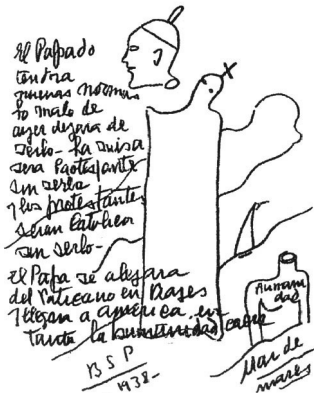 El Papado
tendra
nuevas normas
lo malo de
ayer dejara de
serlo - La misa
sera Protestante
sin serlo
y los protestantes
seran Catolicos
sin serlo -
El Papa se alejara
del Vaticano en Viajes
y llegara a america, en
tanto la humanidad caera
BSP
1938-
Humani
dad
Mar de
mares